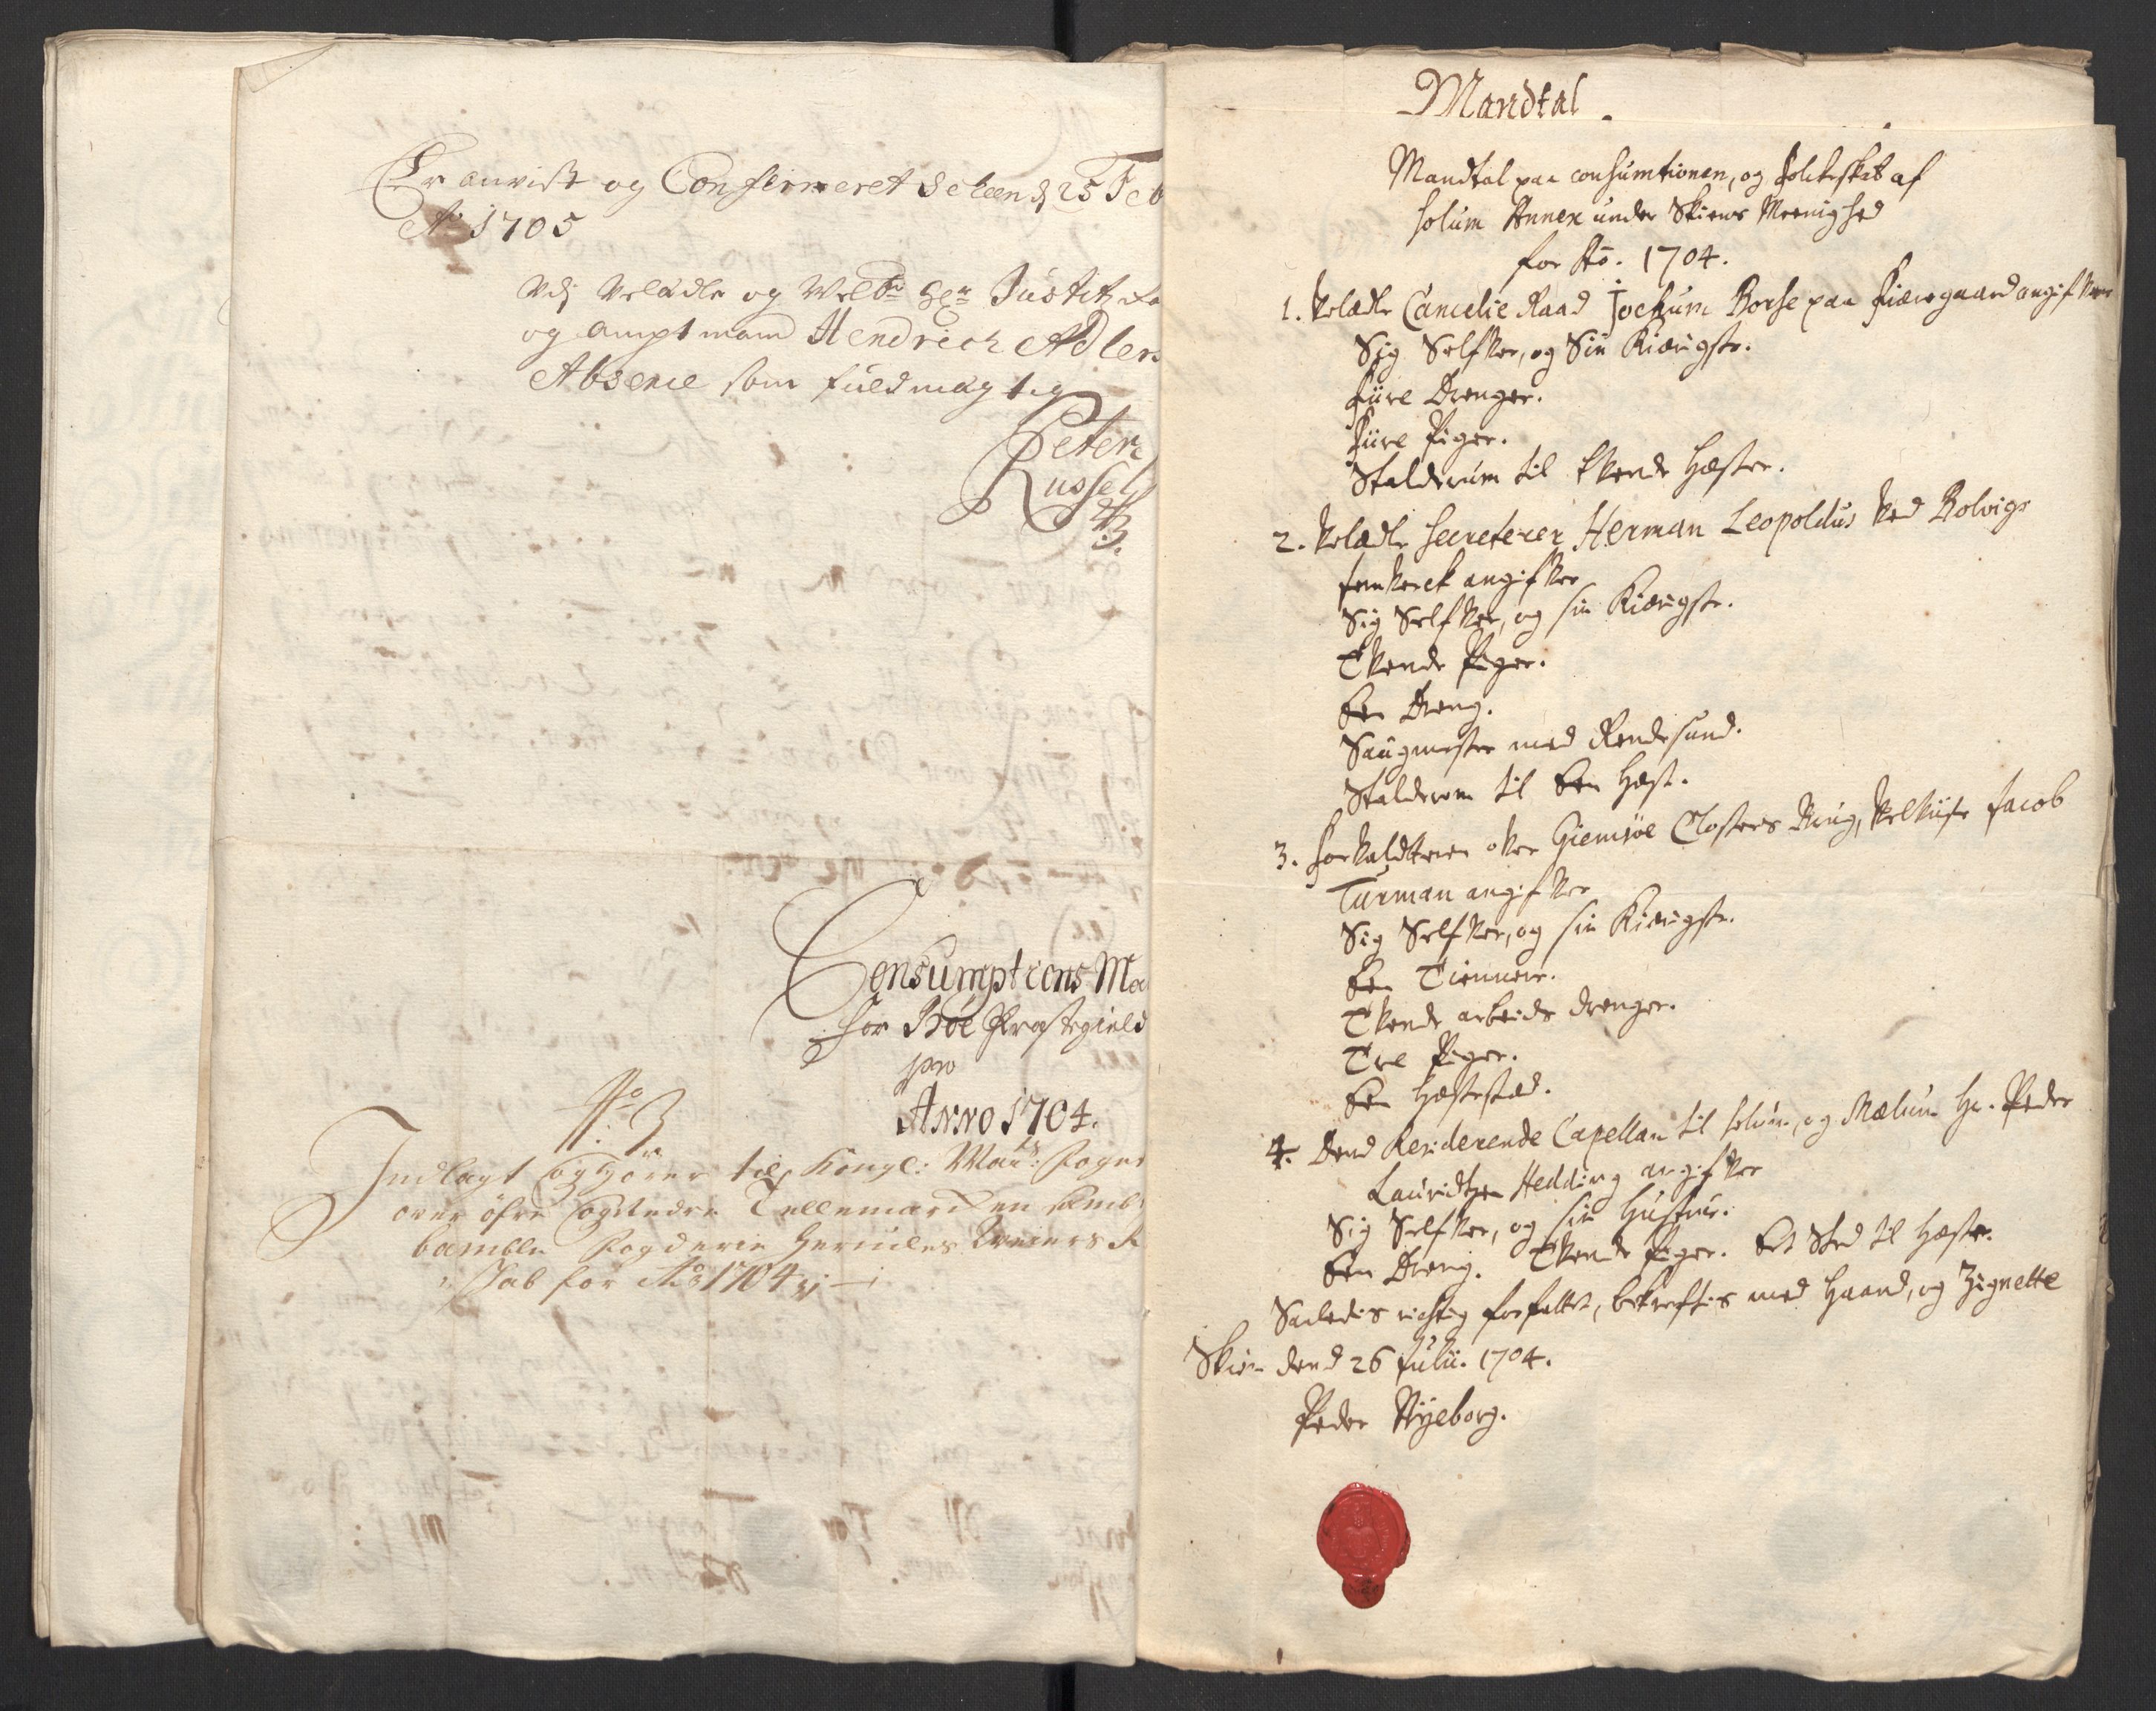 Er anvist og Confirmeret Scheen d 25 Feb
Ao 1705
Udj Velædle og Velbr Hr Justitz Ra
og amptmand Hendrich Adlers
Absence som fuldmægtig
Peter
Russel
Consumptions Ma
for Böe Præstegield
pro
Anno 1704.
No 3
Indlagt og hörer til Kongl: May:ts Foget
over öfre og Nedre Tellemarcken samb
bamble Fogderie Hercules Weiers R
skab for Ao 1704
Mandtal.
Mandtal paa consumtionen, og Folckeskat af
Solum Annex under Skiens Meenighed
for Ao. 1704.
1. Velædle Cancelie Raad Jochum Borse paa Fiæregaard angifver
Sig Selfver, og Sin Kiærigste.
Fiire Drenger.
Fiire Piger.
Stalderum til tvende Hæster.
2. Velædle Secreterer Herman Leopoldus ved Bolvigs
Jernverck angifver
Sig Selfver, og sin Kiærigste.
Tvende Piger.
Een Dreng.
Saugmester med Rendesund.
Stalderom til Een Hæst.
3. Forvaldteren over Giemsöe Closters Brug, Velviise Jacob
Turman angifver
Sig Selfver, og sin Kiærigste.
Een Tiennere.
Tvende arbeids drenger.
Tre Piger.
Een Hæstestad.
4. Dend Residerende Capellan til Solum, og Mælum Hr. Peder
Lauridtzen Hedding angifver
Sig Selfver, og sin Hustrue.
Een Dreng. Tvende Piger. Et Sted til Hæste.
Saaledis rigtig forfattet, bekreftis med Haand, og Zignette
Skien dend 26 Julii. 1704.
Peder Nyeborg.